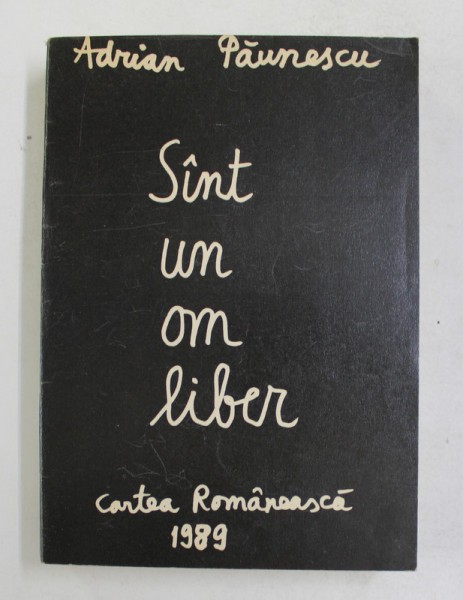 Adrian Păunescu
Sînt
un
om
liber
Cartea Românească
1989